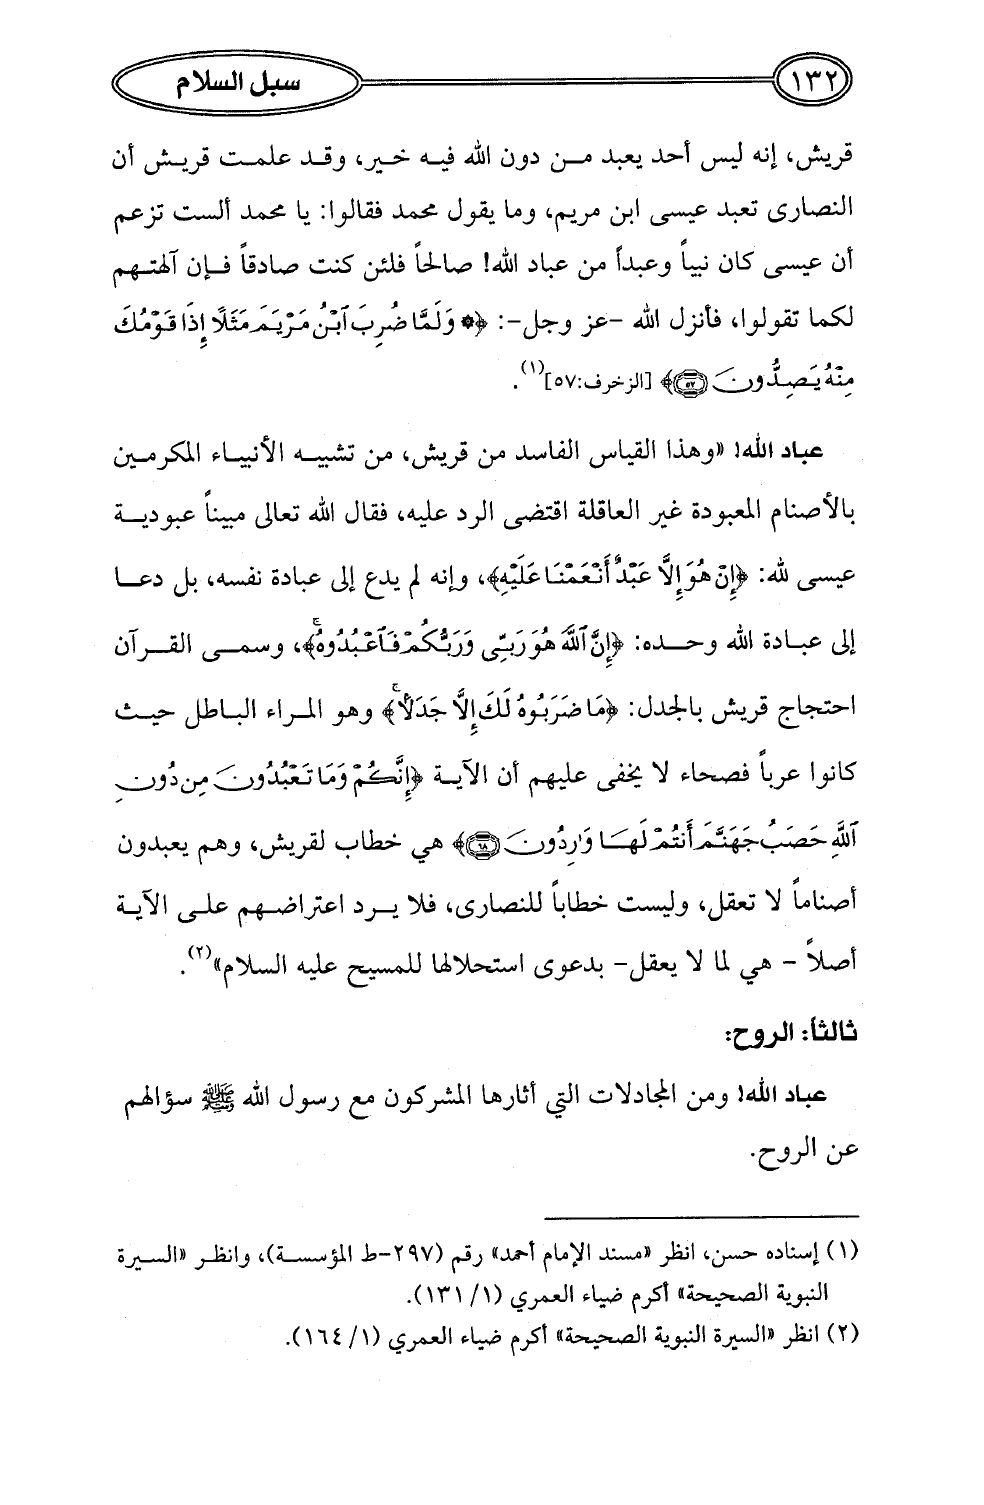 ١٣٢ سبل السلام
قريش، إنه ليس أحد يعبد من دون الله فيه خير، وقد علمت قريش أن
النصارى تعبد عيسى ابن مريم، وما يقول محمد فقالوا: يا محمد ألست تزعم
أن عيسى كان نبياً وعبداً من عباد الله! صالحاً فلئن كنت صادقاً فإن آلهتهم
لكما تقولوا، فأنزل الله -عز وجل-: ﴿۞ وَلَمَّا ضُرِبَ ٱبْنُ مَرْيَمَ مَثَلًا إِذَا قَوْمُكَ
مِنْهُ يَصِدُّونَ ۝٥٧﴾ [الزخرف:٥٧](١).
عباد الله! «وهذا القياس الفاسد من قريش، من تشبيه الأنبياء المكرمين
بالأصنام المعبودة غير العاقلة اقتضى الرد عليه، فقال الله تعالى مبيناً عبودية
عيسى لله: ﴿إِنْ هُوَ إِلَّا عَبْدٌ أَنْعَمْنَا عَلَيْهِ﴾، وإنه لم يدع إلى عبادة نفسه، بل دعا
إلى عبادة الله وحده: ﴿إِنَّ ٱللَّهَ هُوَ رَبِّى وَرَبُّكُمْ فَٱعْبُدُوهُ ۚ﴾، وسمى القرآن
احتجاج قريش بالجدل: ﴿مَا ضَرَبُوهُ لَكَ إِلَّا جَدَلًا ۚ﴾ وهو المراء الباطل حيث
كانوا عرباً فصحاء لا يخفى عليهم أن الآية ﴿إِنَّكُمْ وَمَا تَعْبُدُونَ مِن دُونِ
ٱللَّهِ حَصَبُ جَهَنَّمَ أَنتُمْ لَهَا وَٰرِدُونَ ۝٩٨﴾ هي خطاب لقريش، وهم يعبدون
أصناماً لا تعقل، وليست خطاباً للنصارى، فلا يرد اعتراضهم على الآية
أصلاً - هي لما لا يعقل- بدعوى استحلالها للمسيح عليه السلام»(٢).
ثالثاً: الروح:
عباد الله! ومن المجادلات التي أثارها المشركون مع رسول الله ﷺ سؤالهم
عن الروح.
(١) إسناده حسن، انظر «مسند الإمام أحمد» رقم (٢٩٧-ط المؤسسة)، وانظر «السيرة
النبوية الصحيحة» أكرم ضياء العمري (١/ ١٣١).
(٢) انظر «السيرة النبوية الصحيحة» أكرم ضياء العمري (١/ ١٦٤).